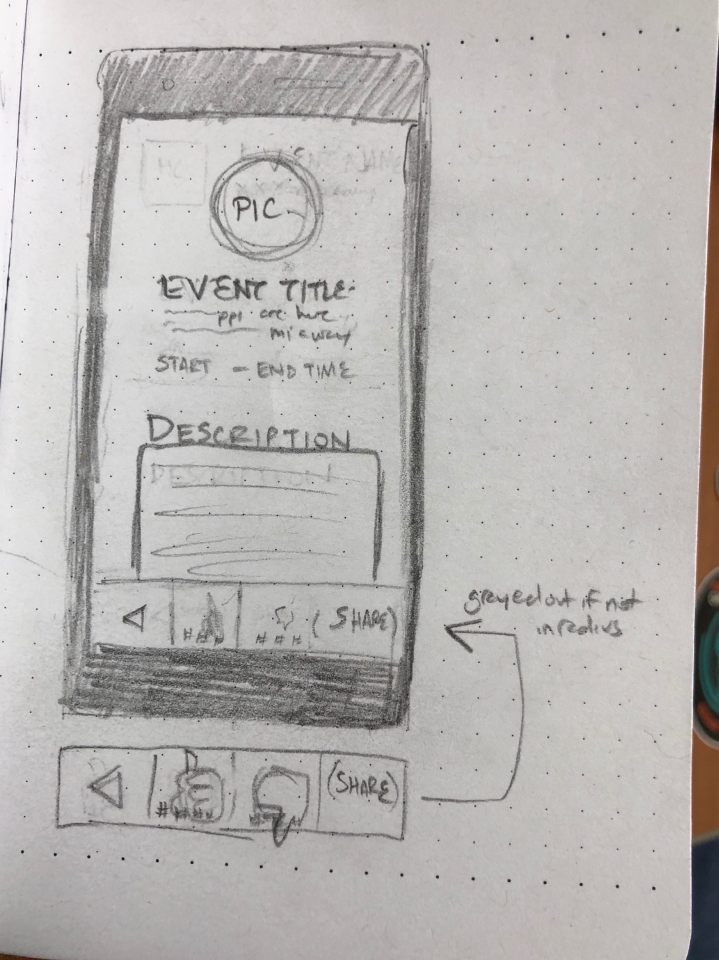 PIC
EVENT TITLE
ppl are here
mi away
START – END TIME
DESCRIPTION
DESCRIPTION
### ### (SHARE)
grayed out if not
in radius
#### (SHARE)